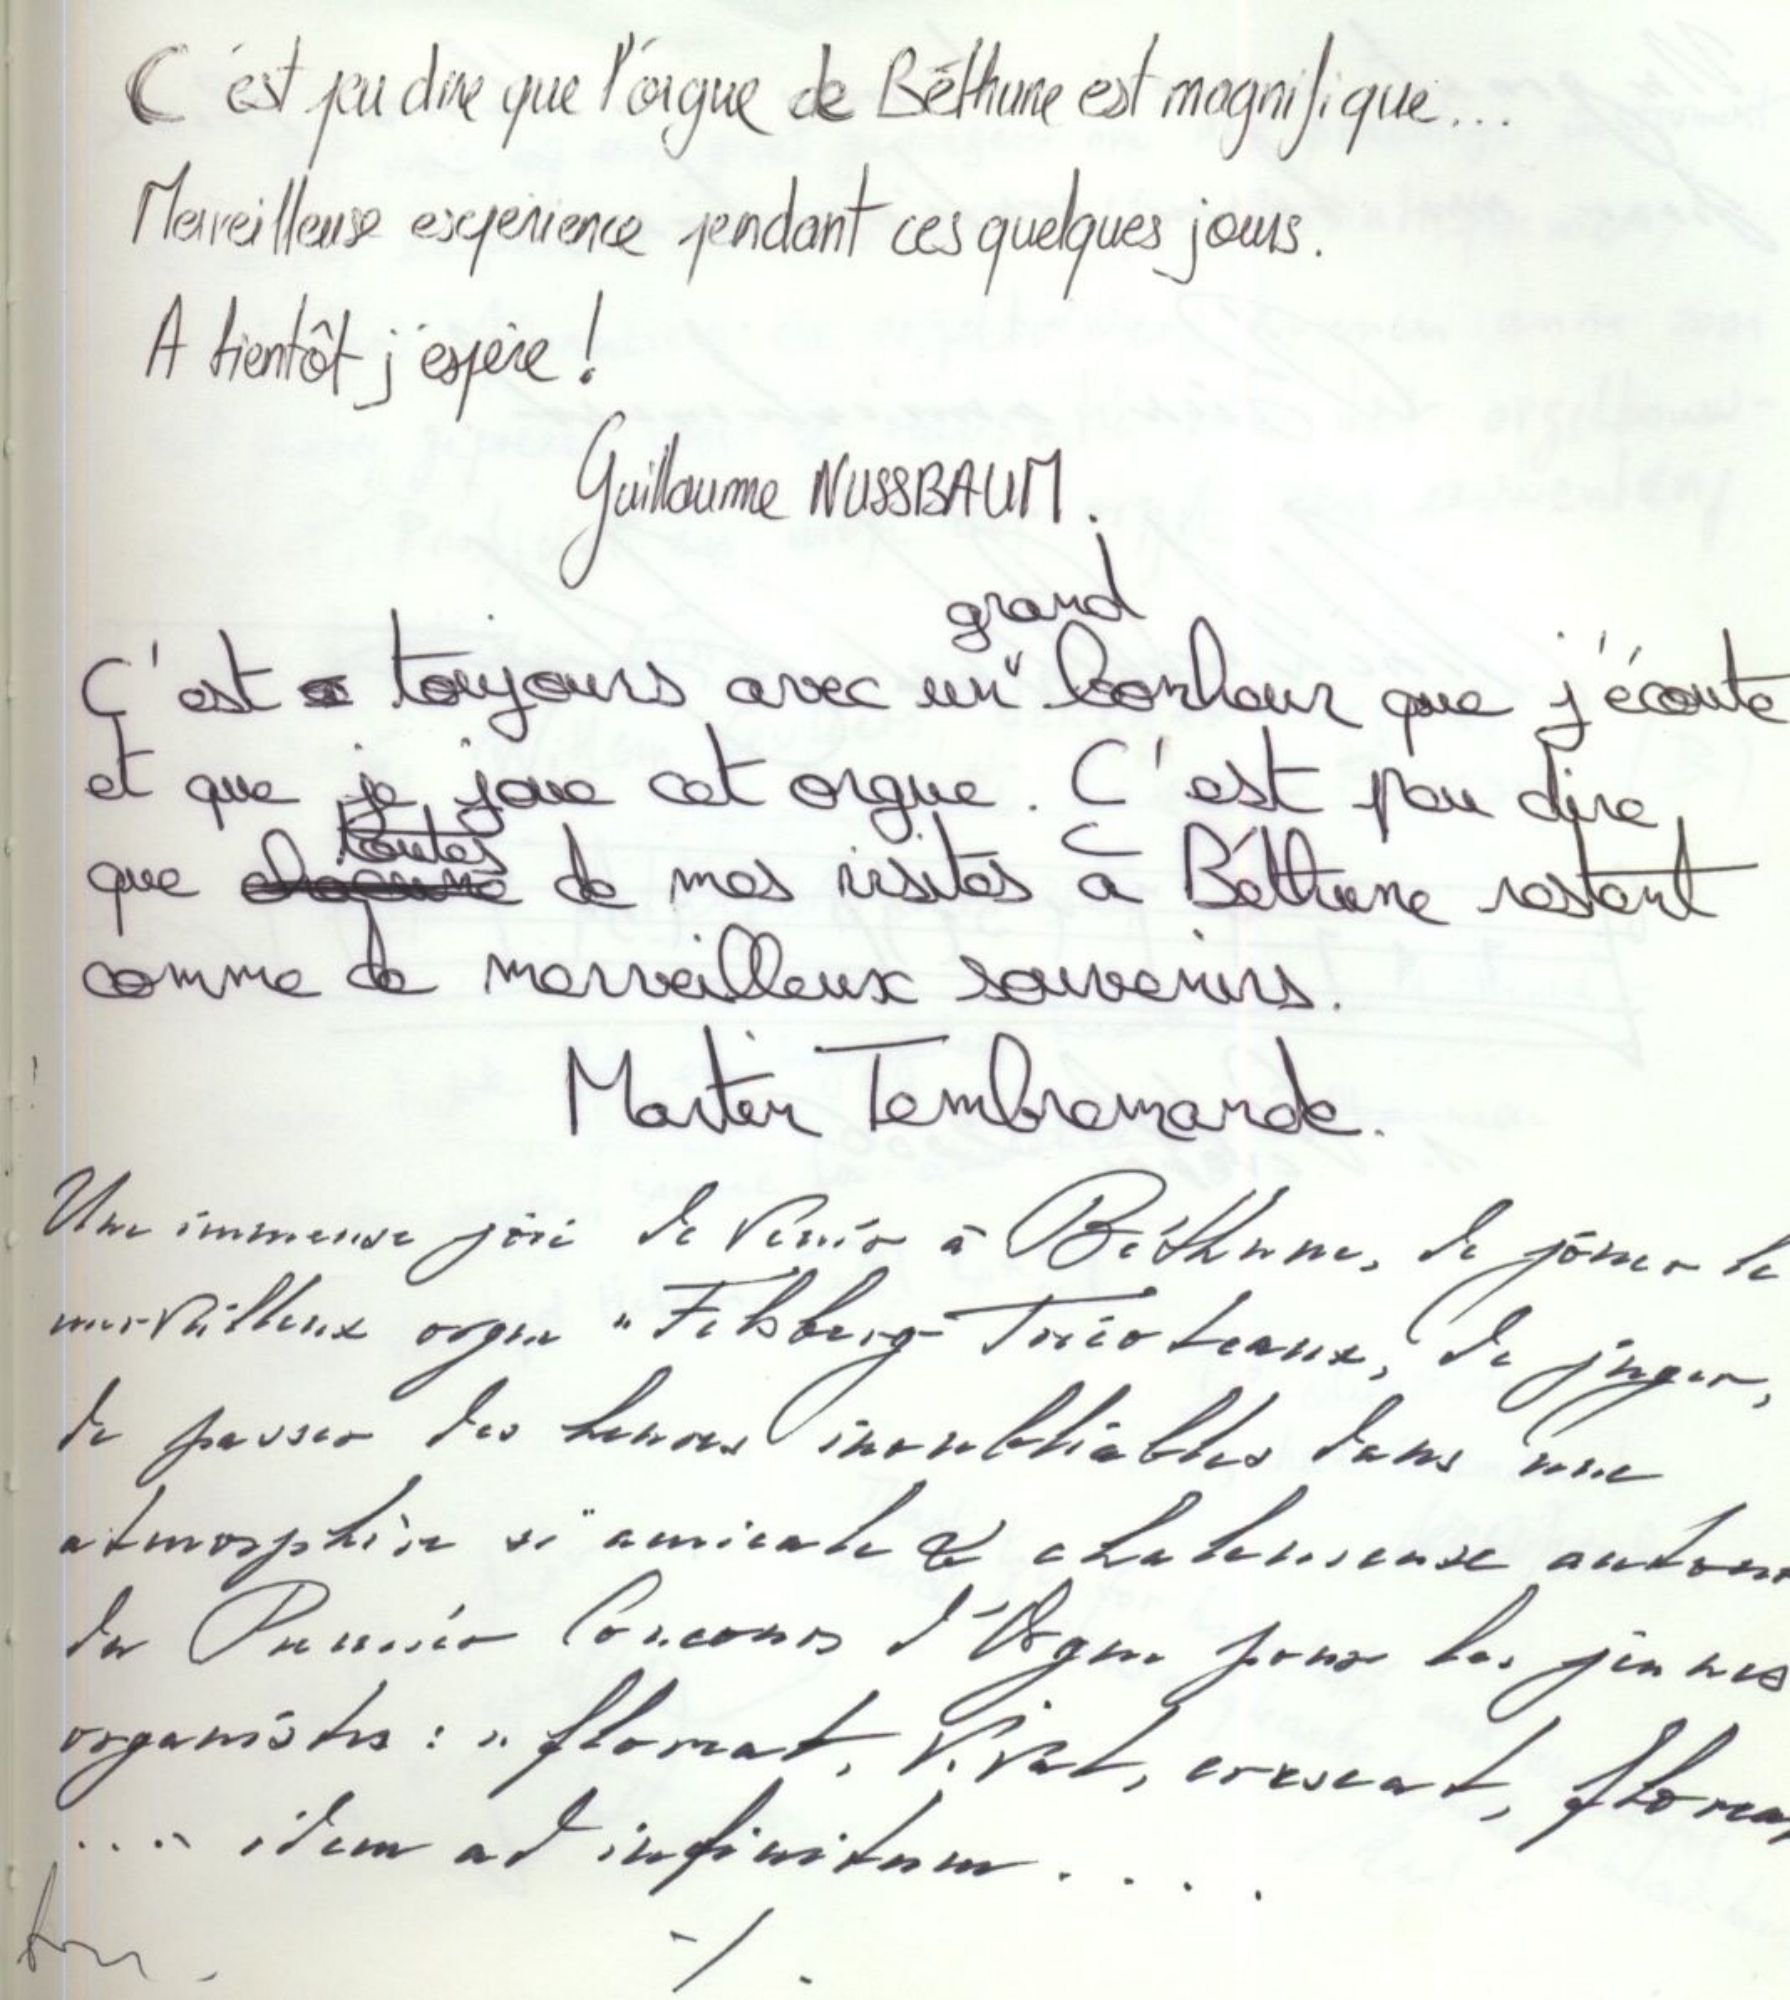 C'est peu dire que l'orgue de Béthune est magnifique...
Merveilleuse expérience pendant ces quelques jours.
A bientôt j'espère !
Guillaume NUSSBAUM.
grand
C'est toujours avec un bonheur que j'écoute
et que je joue cet orgue. C'est peu dire
toutes
que chacune de mes visites à Béthune restent
comme de merveilleux souvenirs.
Martin Tembremande.
Une immense joie de venir à Béthune, de jouer le
merveilleux orgue "Felsberg-Tricoteaux, de juger,
de passer des heures inoubliables dans une
atmosphère si amicale & chaleureuse autour
du Premier Concours d'Orgue pour les jeunes
organistes : " floreat, vivat, crescat, floreat
.... idem ad infinitum....